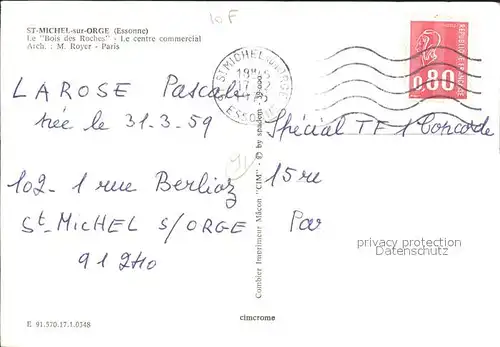 10 F
ST-MICHEL-sur-ORGE (Essonne)
Le "Bois des Roches" - Le centre commercial
Arch. : M. Royer - Paris
ST MICHEL SUR ORGE
19H
17 - 2
ESSONNE
REPUBLIQUE FRANCAISE
0,80
LAROSE Pascale
née le 31-3-59
102-1 rue Berlioz
St-MicHEL s/ORGE
91240
Combier Imprimeur Mâcon "CIM" - © by spadem
Spécial TF 1 Concorde
15 re
Par
privacy protection
watermark
E 91.570.17.1.0348
cimcrome